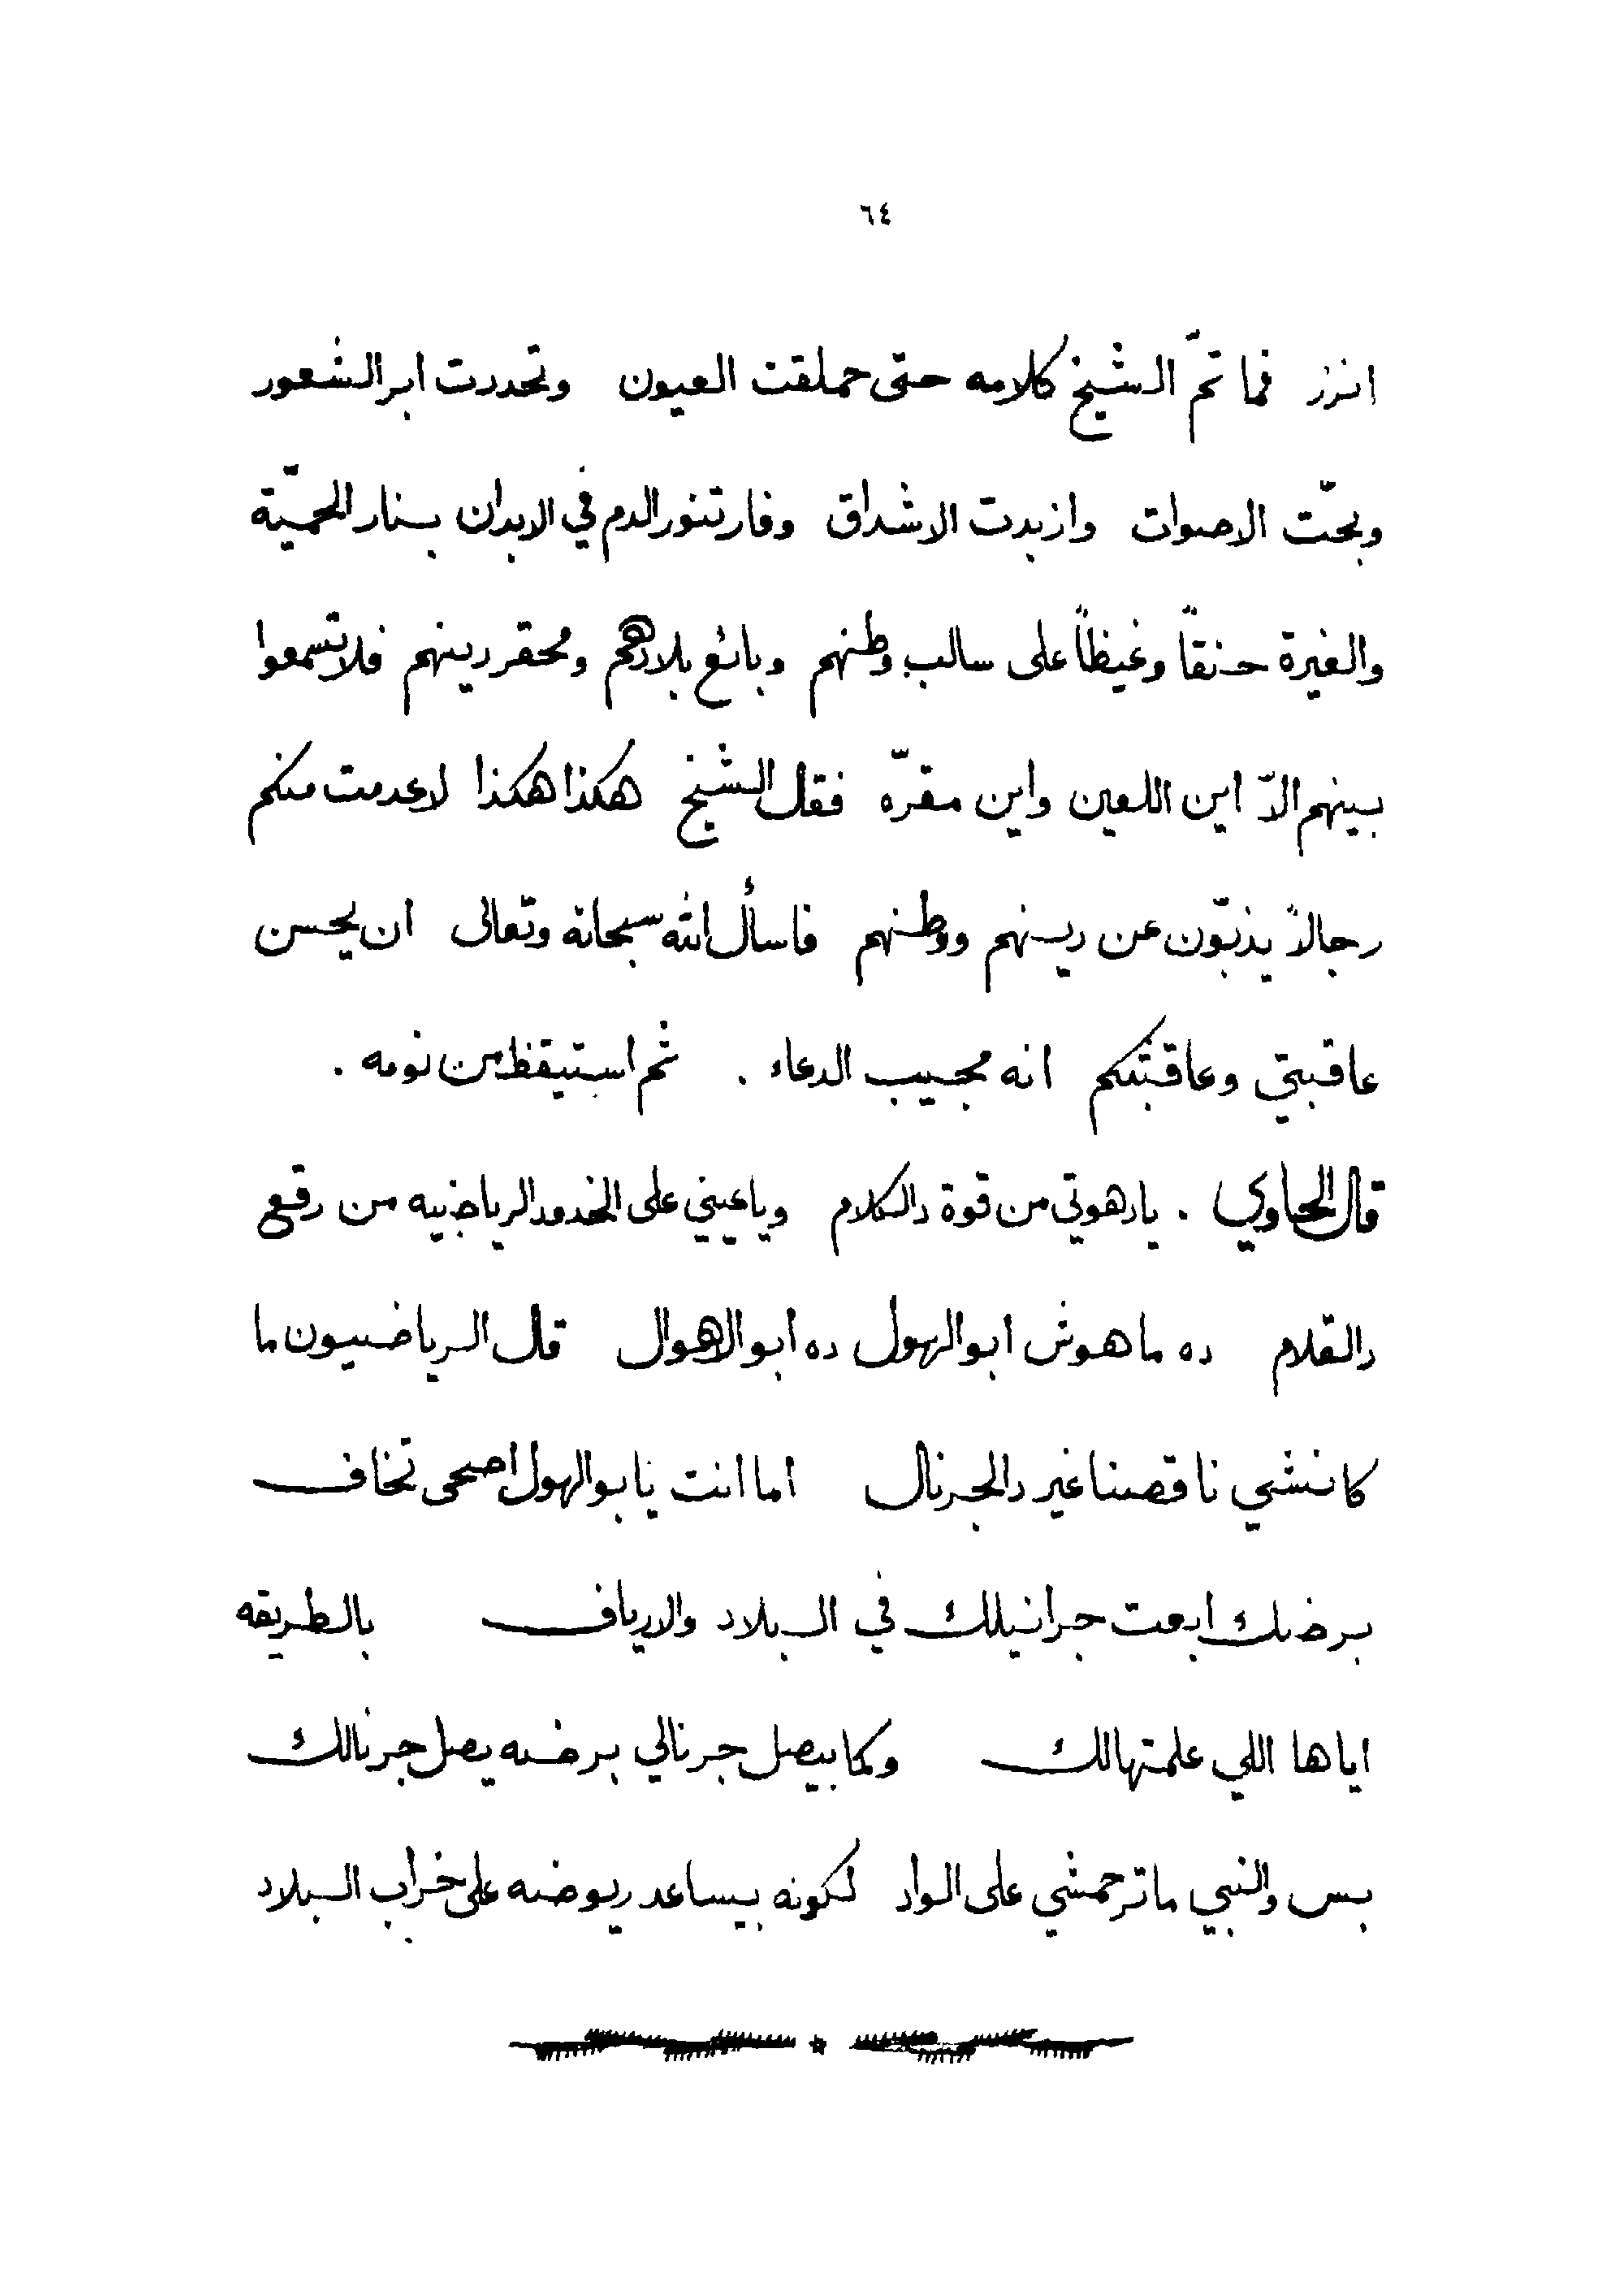 ٦٤
انرز فما تمّ الشيخ كلامه حتى حملقت العيون وتحدرت ابر الشعور
وبحّت الاصوات وازبدت الاشداق وفار تنور الدم في الابدان بنار الحميّة
والغيرة حنقاً وغيظاً على سالب وطنهم وبائع بلادهم ومحقر دينهم فلا تسمعوا
بينهم الاّ اين اللعين واين مقرّه فقال الشيخ هكذا هكذا لا عدمت منكم
رجالاً يذبّون عن دينهم ووطنهم فاسأل الله سبحانه وتعالى ان يحسن
عاقبتي وعاقبتكم انه مجيب الدعاء . ثم استيقظ من نومه .
قال الحاوي . يادهوتي من قوة دالكلام وياعيني على الخدود الرياضيه من رقع
دالقلام ده ماهوش ابو الهول ده ابو الاهوال قال الرياضيون ما
كانشي ناقصنا غير دالجرنال اما انت يابو الهول اصحى تخاف
برضك ابعت جرانيلك في البلاد والارياف بالطريقه
اياها اللي علمتهالك وكما بيصل جرنالي برضه يصل جرنالك
بس والنبي ماترحمشي على الواد لكونه بيساعد ريوضه على خراب البلاد